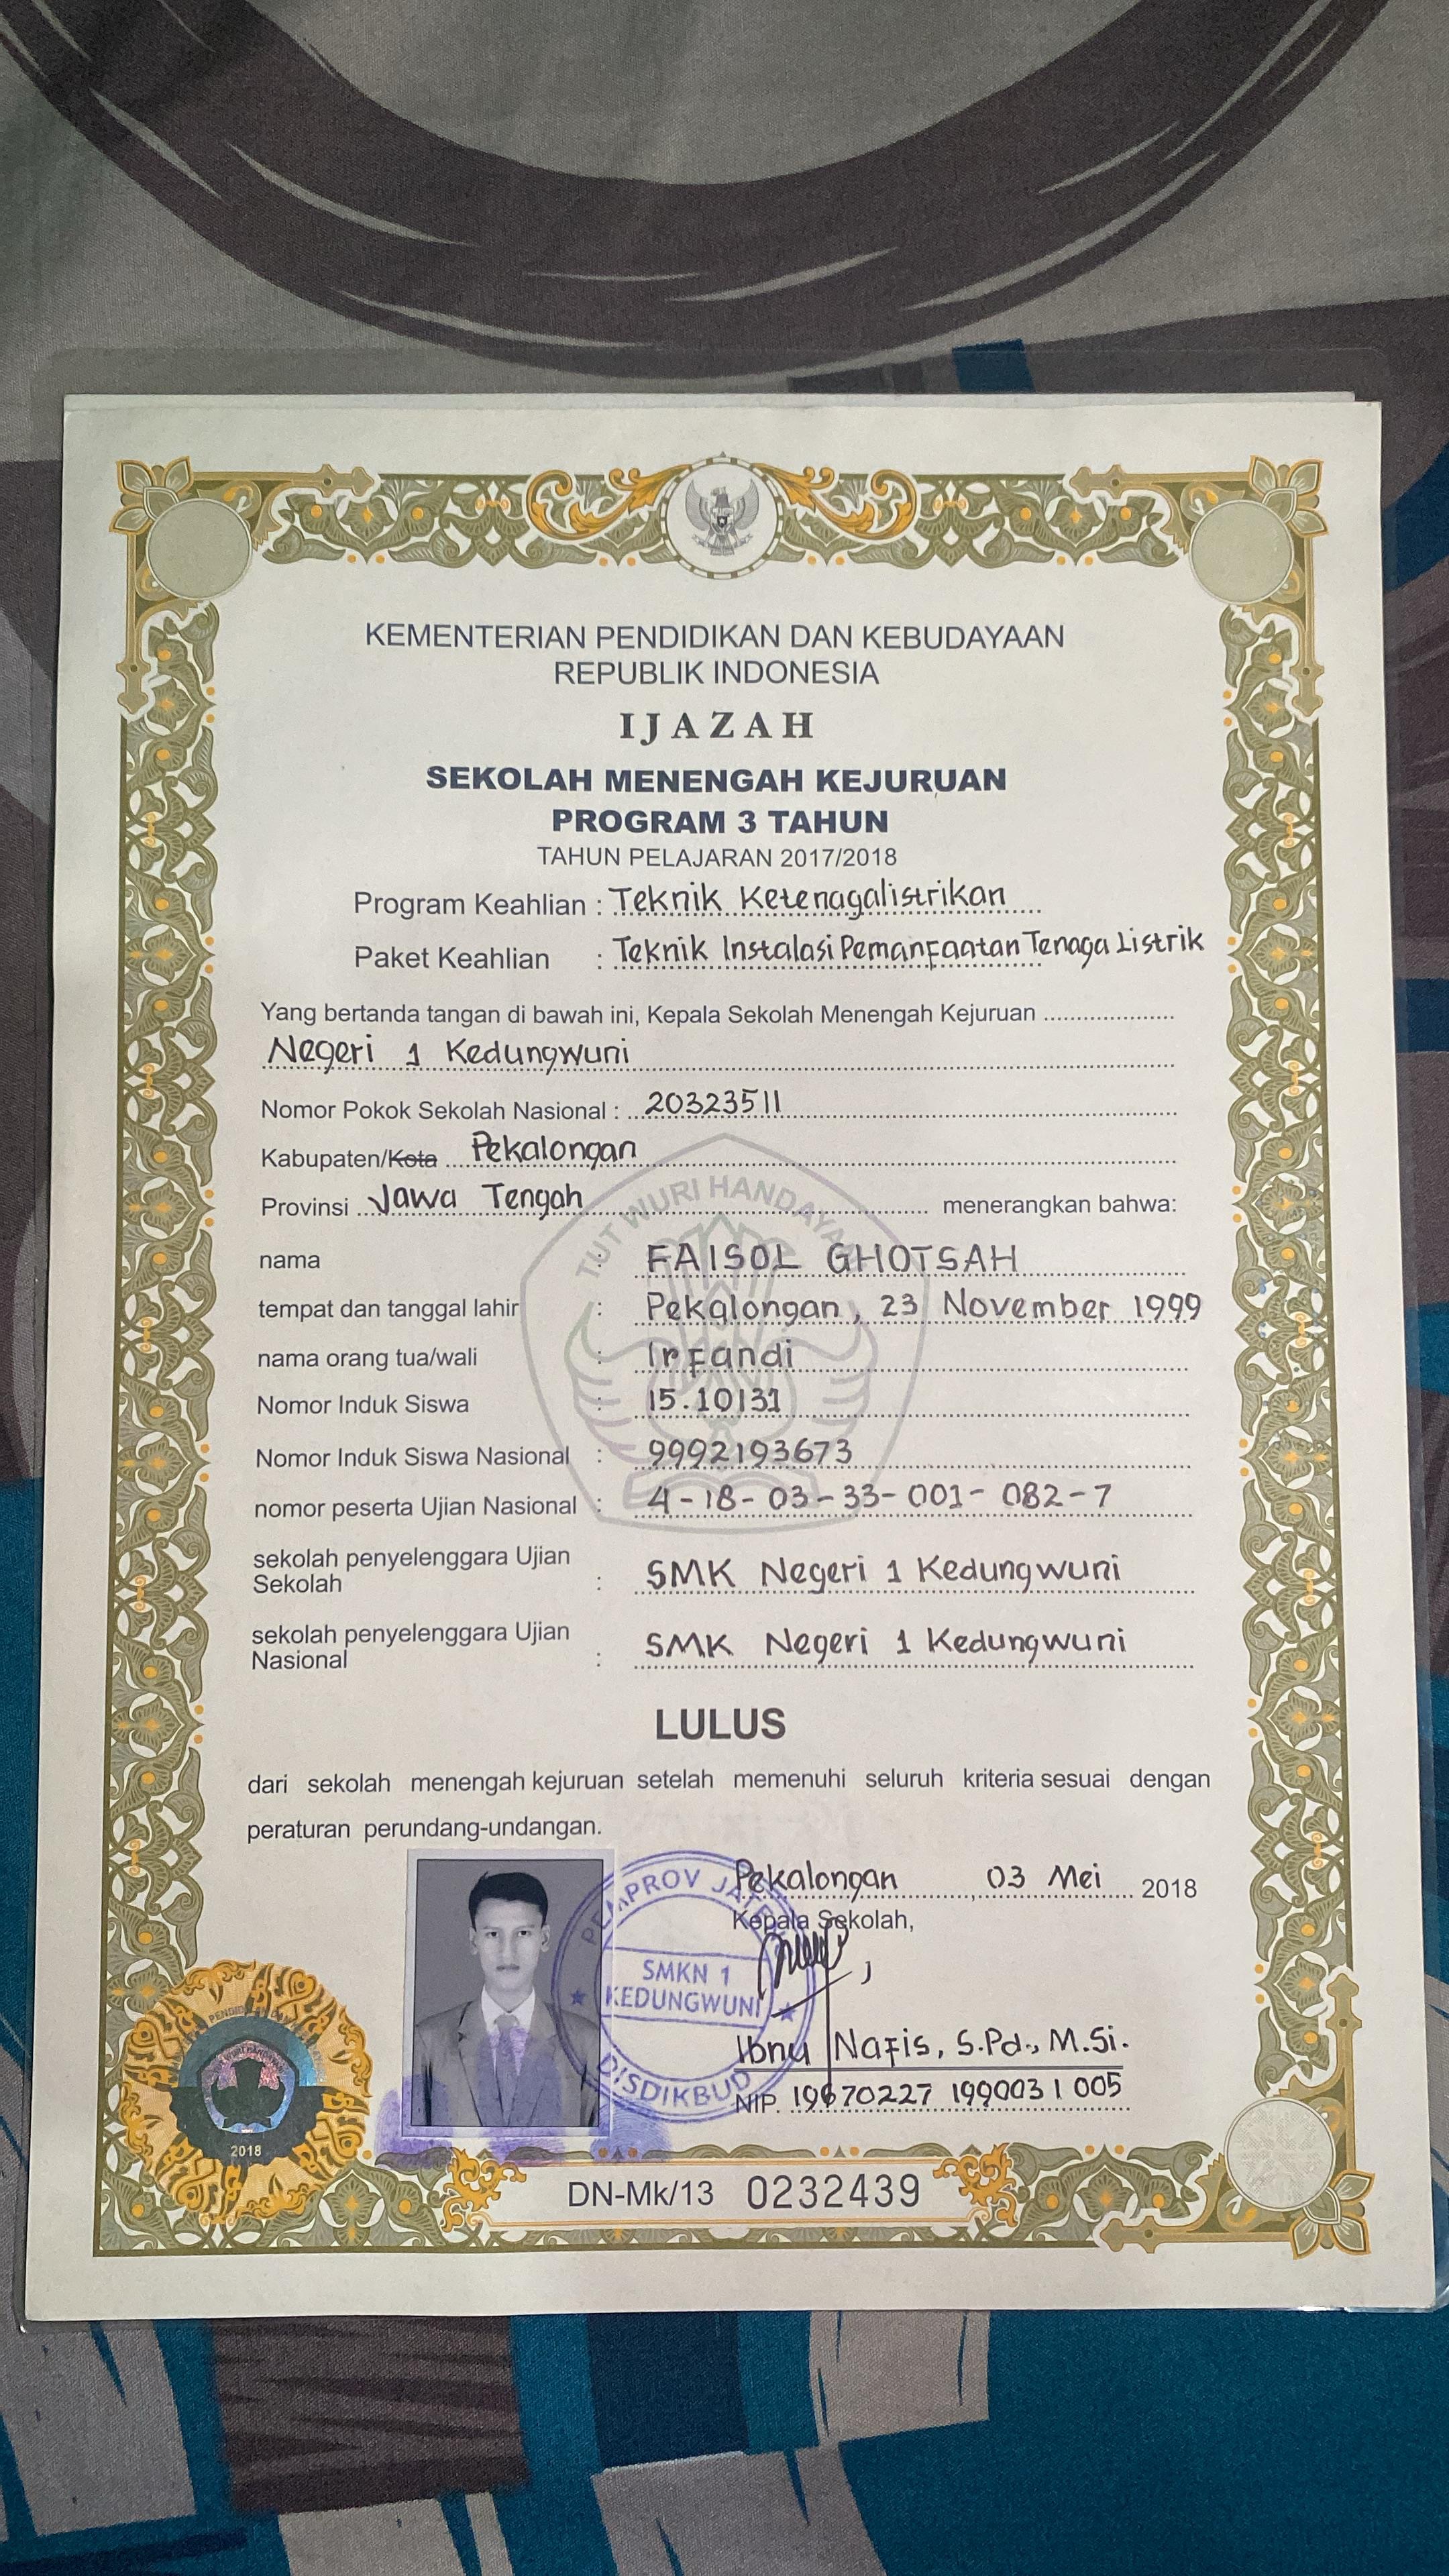 KEMENTERIAN PENDIDIKAN DAN KEBUDAYAAN
REPUBLIK INDONESIA
IJAZAH
SEKOLAH MENENGAH KEJURUAN
PROGRAM 3 TAHUN
TAHUN PELAJARAN 2017/2018
Program Keahlian : Teknik Ketenagalistrikan
Paket Keahlian : Teknik Instalasi Pemanfaatan Tenaga Listrik
Yang bertanda tangan di bawah ini, Kepala Sekolah Menengah Kejuruan
Negeri 1 Kedungwuni
Nomor Pokok Sekolah Nasional : 20323511
Kabupaten/Kota Pekalongan
Provinsi Jawa Tengah menerangkan bahwa:
TUT WURI HANDAYANI
nama : FAISOL GHOTSAH
tempat dan tanggal lahir : Pekalongan, 23 November 1999
nama orang tua/wali : Irfandi
Nomor Induk Siswa : 15.10131
Nomor Induk Siswa Nasional : 9992193673
nomor peserta Ujian Nasional : 4-18-03-33-001-082-7
sekolah penyelenggara Ujian
Sekolah : SMK Negeri 1 Kedungwuni
sekolah penyelenggara Ujian
Nasional : SMK Negeri 1 Kedungwuni
LULUS
dari sekolah menengah kejuruan setelah memenuhi seluruh kriteria sesuai dengan
peraturan perundang-undangan.
Pekalongan, 03 Mei 2018
Kepala Sekolah,
PEMPROV JATENG
SMKN 1
KEDUNGWUNI
DISDIKBUD
Ibnu Nafis, S.Pd., M.Si.
NIP. 19670227 199003 1 005
2018
DN-Mk/13 0232439